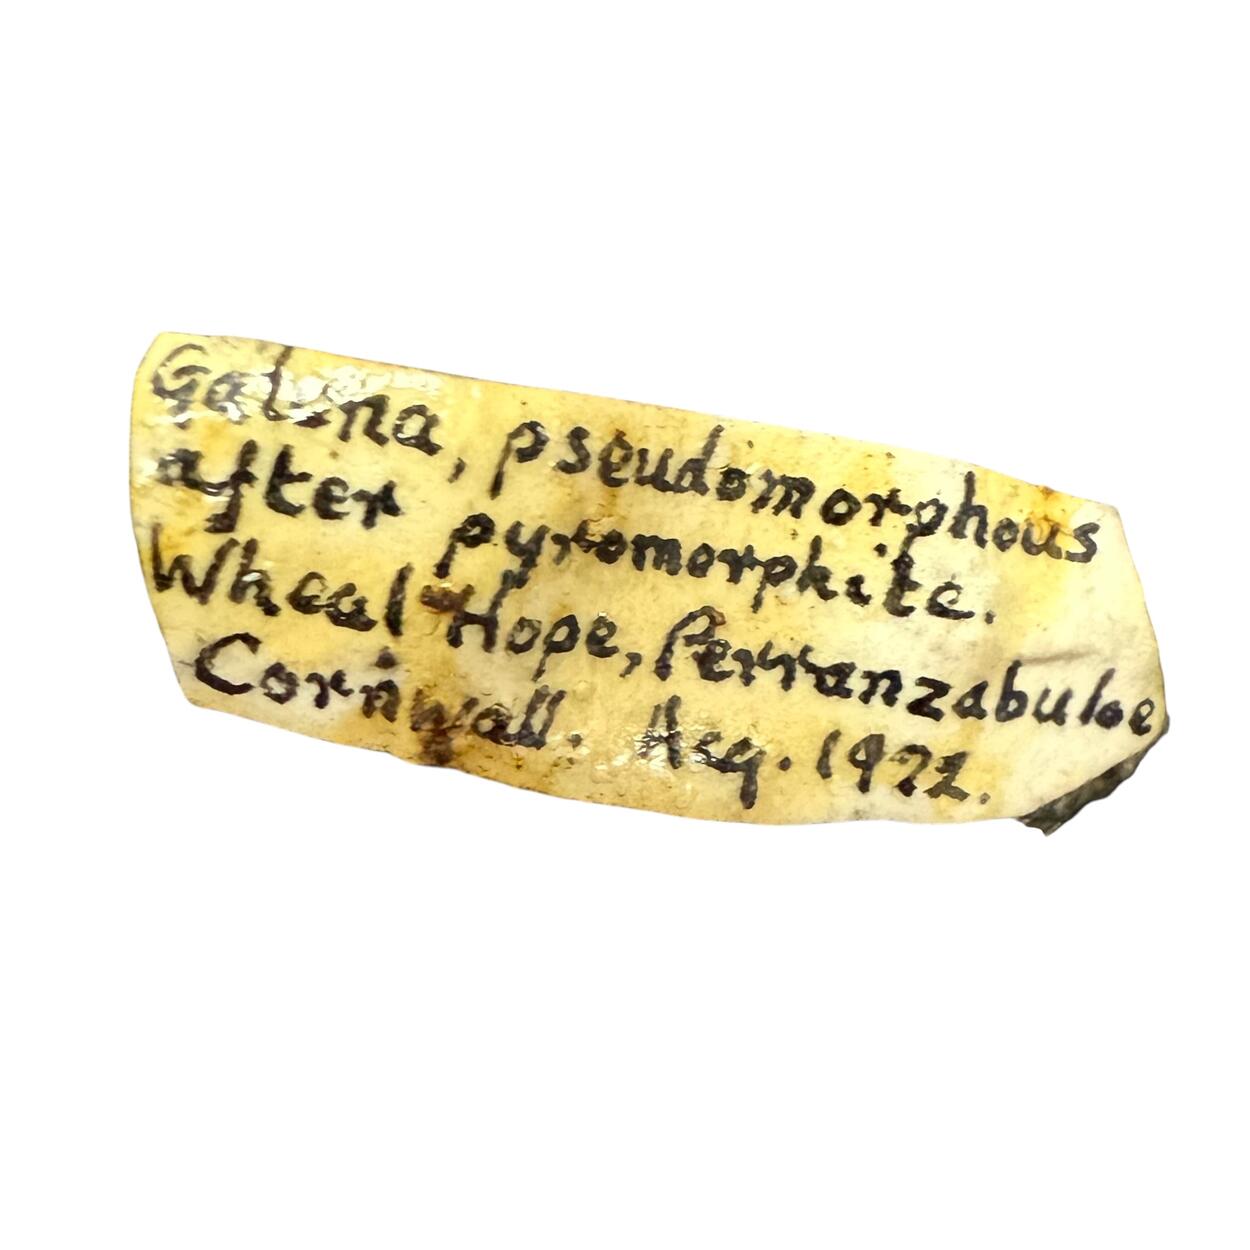 Galena, pseudomorphous
after pyromorphite.
Wheal Hope, Perranzabuloe
Cornwall. Acq. 1972.